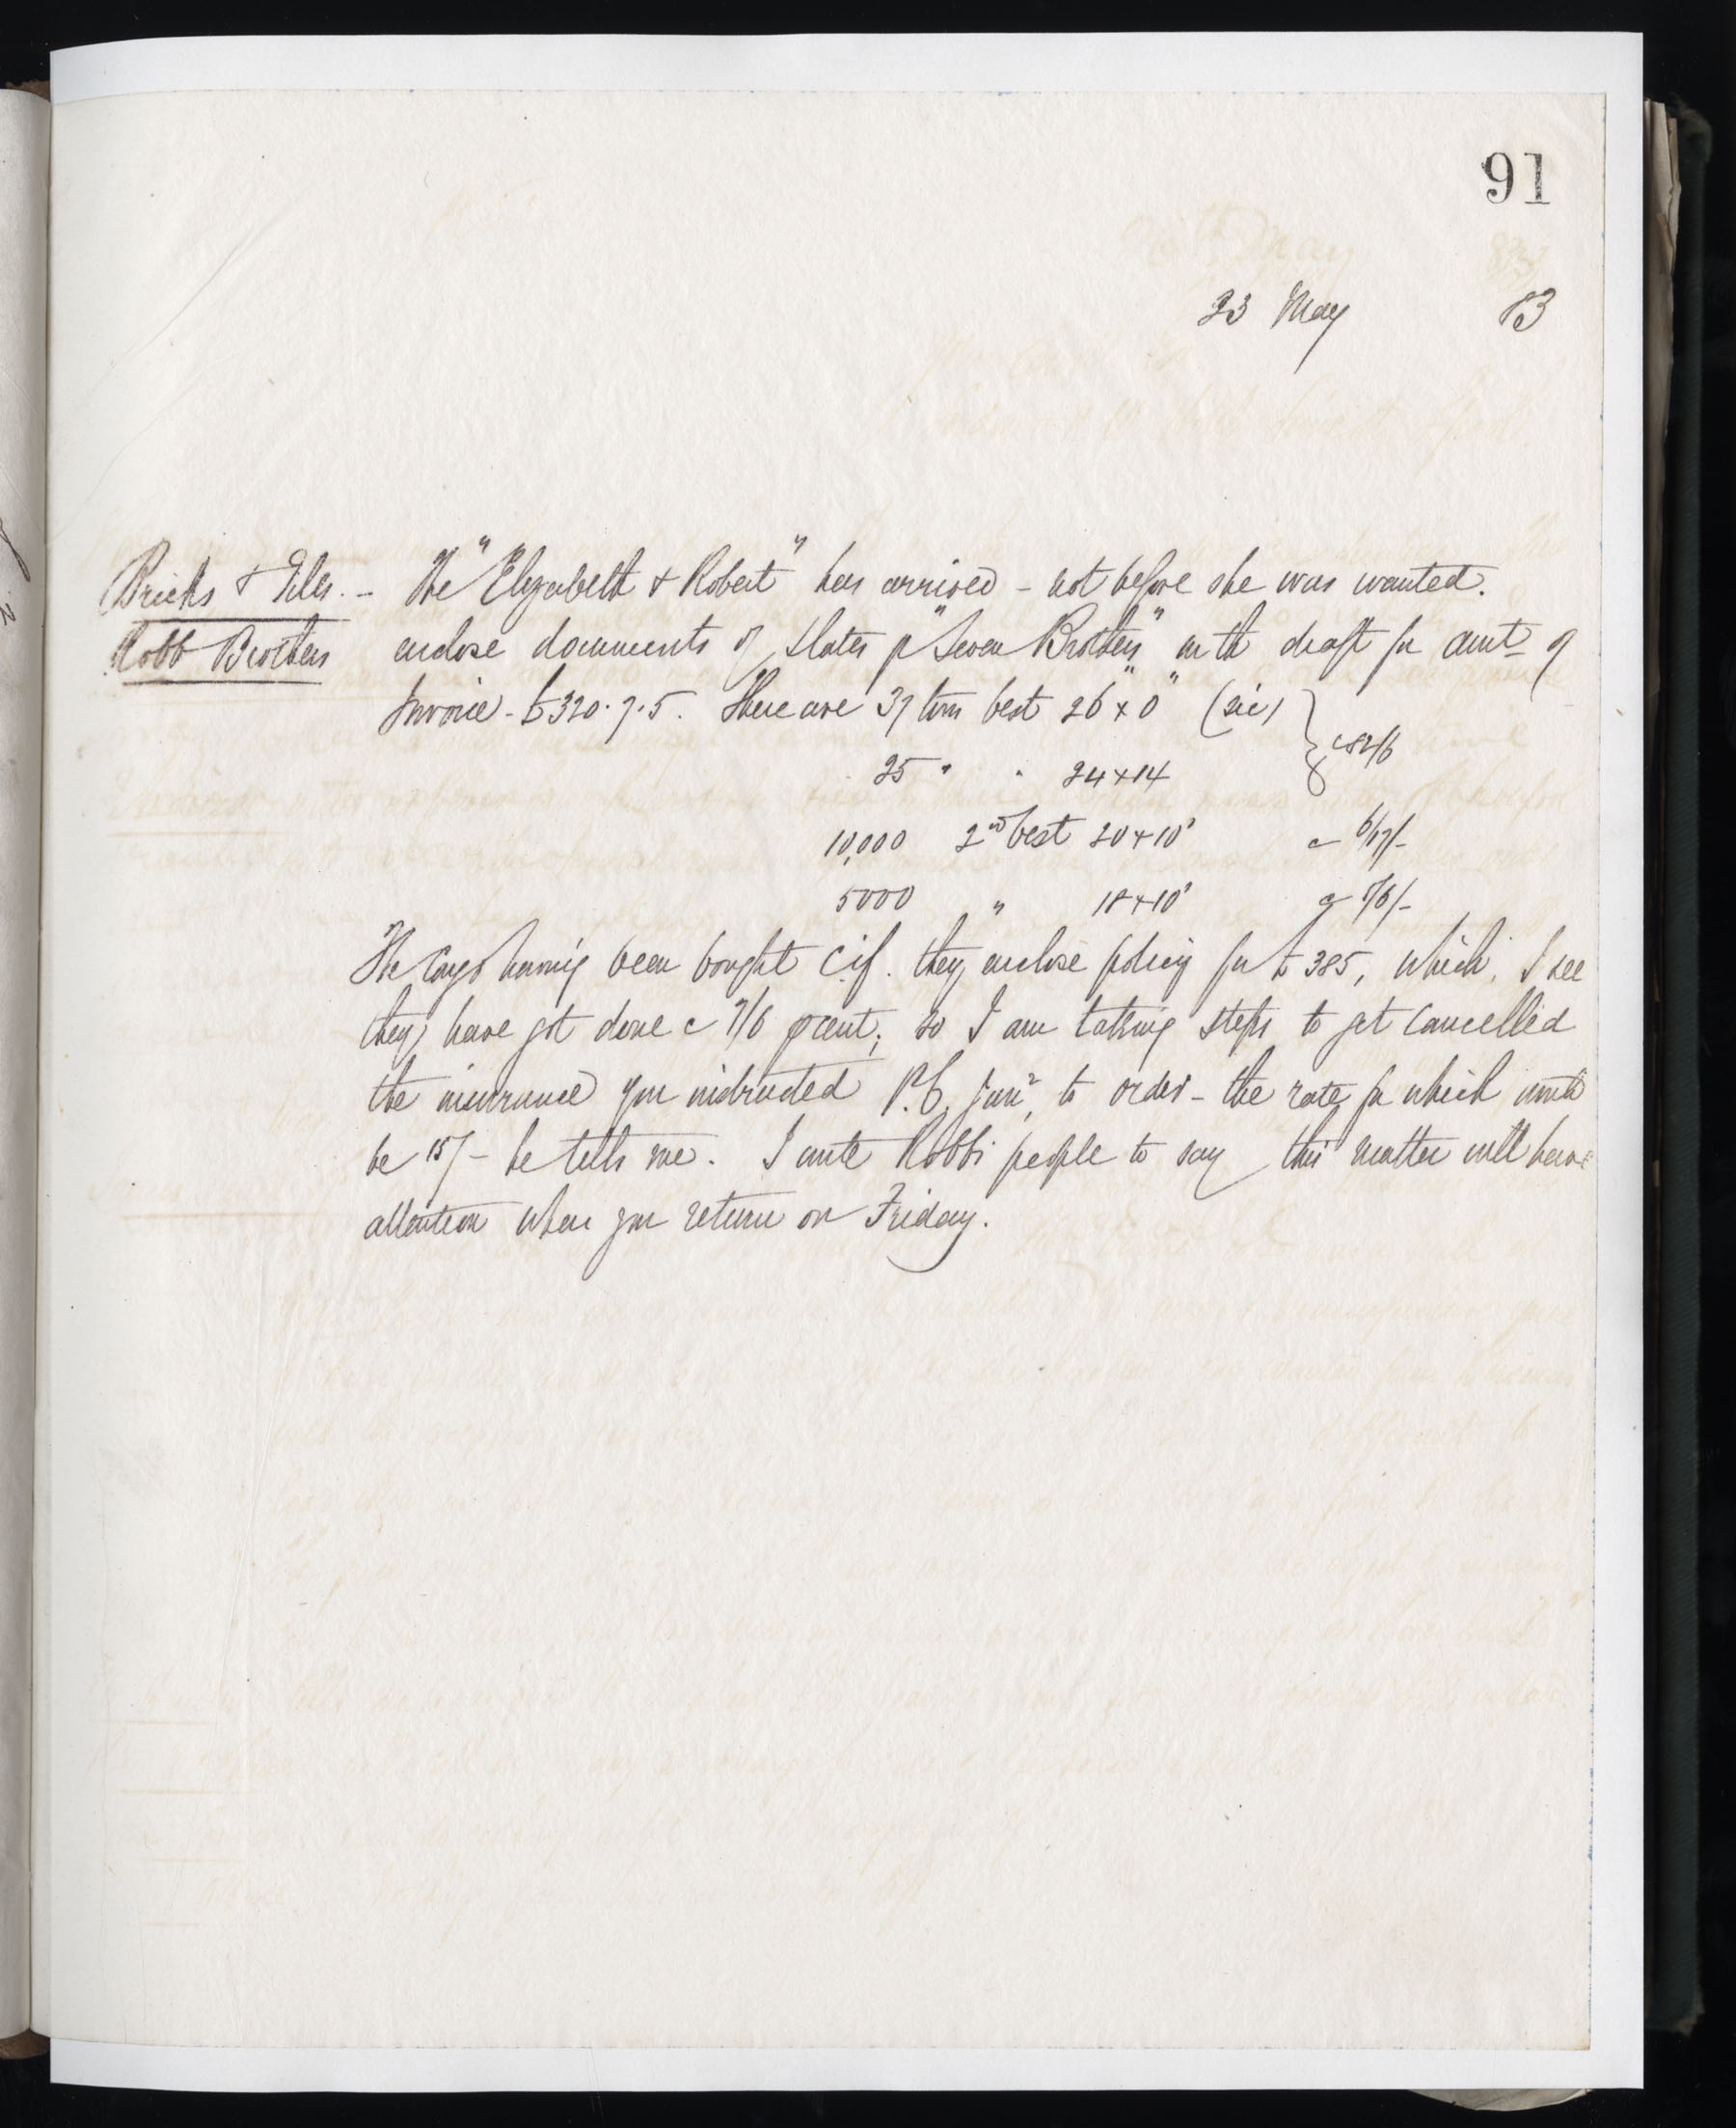 91
23 May 83
Bricks & Tiles. - The "Elizabeth & Robert" has arrived - not before she was wanted.
Robb Brothers enclose documents of slates p "Seven Brothers" with draft for amt of
Invoice - £320.7.5. There are 37 tons best 26" x 0" (sic)
25 " " 24 x 14 } c 82/6
10,000 2nd best 20 x 10' c 6/17/-
5000 " 18 x 10' c
The Cargo having been bought c.i.f. they enclose policy for £385, which, I see
they have got done c 7/6 p cent; so I am taking steps to get cancelled
the insurance you instructed P.C. Junr, to order - the rate for which would
be 15/- he tells me. I write Robb's people to say this matter will have
attention when you return on Friday.